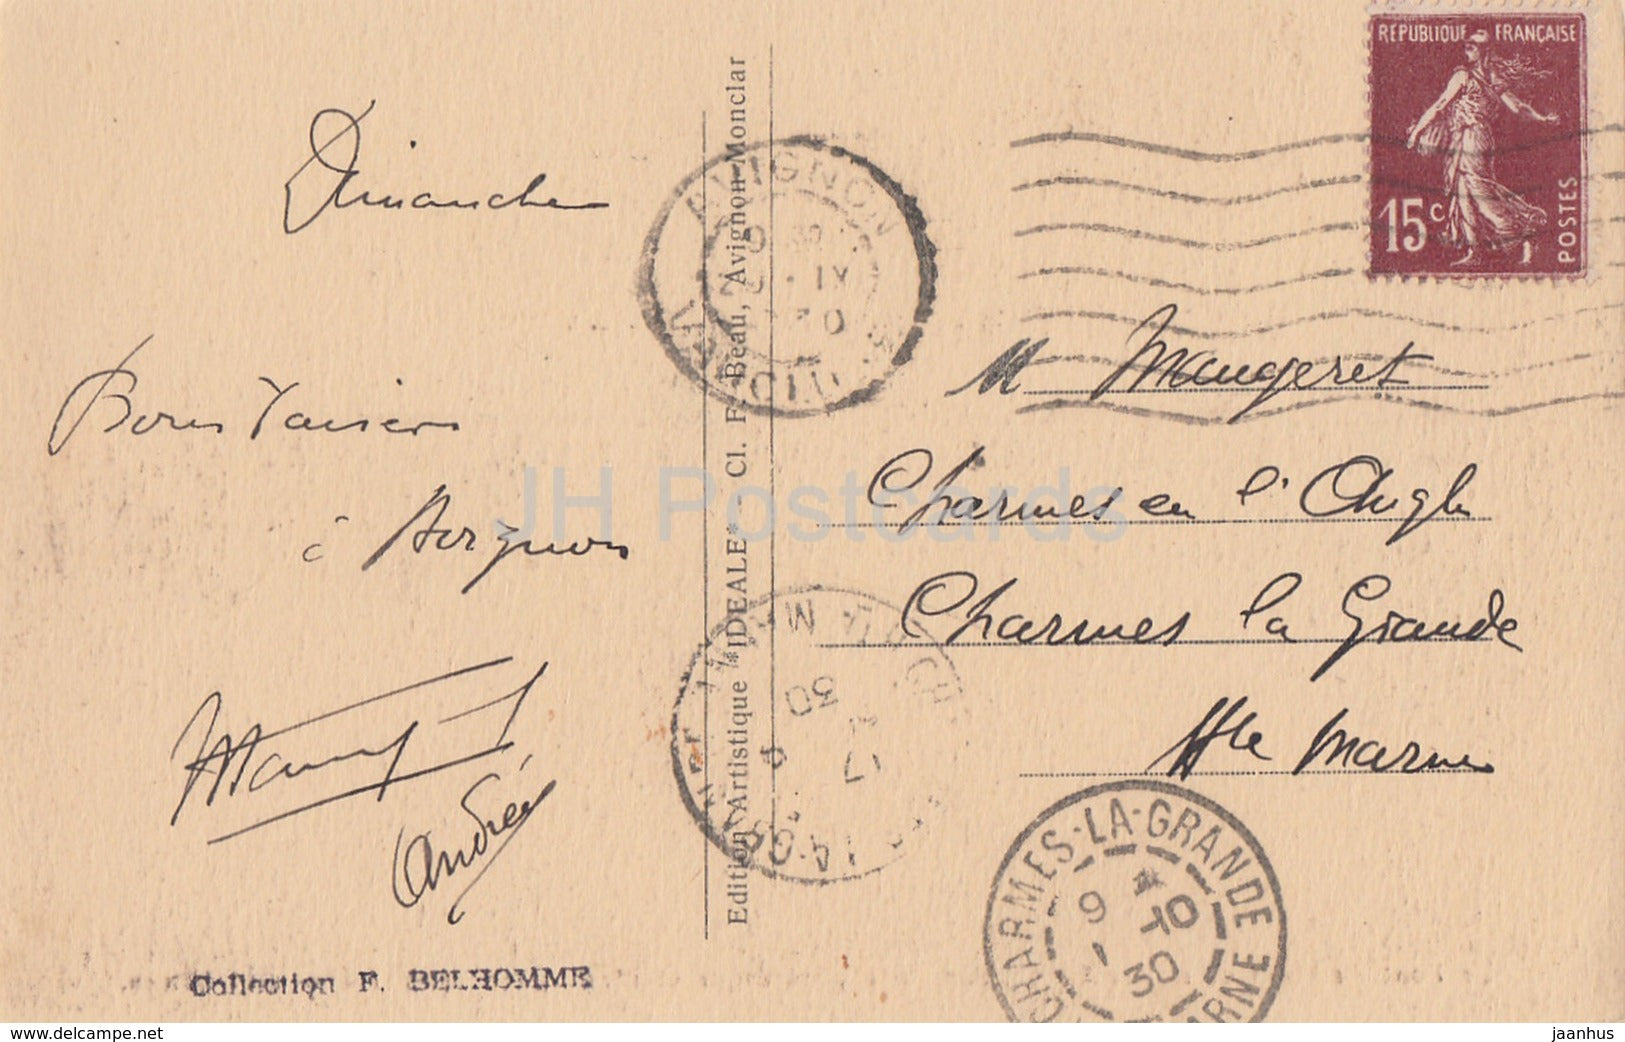 Dimanche
Bons Baisers
à Avignon
Andrée
Collection F. BELHOMME
Edition Artistique "IDEALE" Cl. F. Beau, Avignon-Monclar
AVIGNON
30
17
9
30
REPUBLIQUE FRANÇAISE
15c
POSTES
M Maugeret
Charmes en l'Angle
Charmes la Grande
Hte Marne
CHARMES-LA-GRANDE
9 -10
30
MARNE
JH Postcards
www.delcampe.net
jaanhus